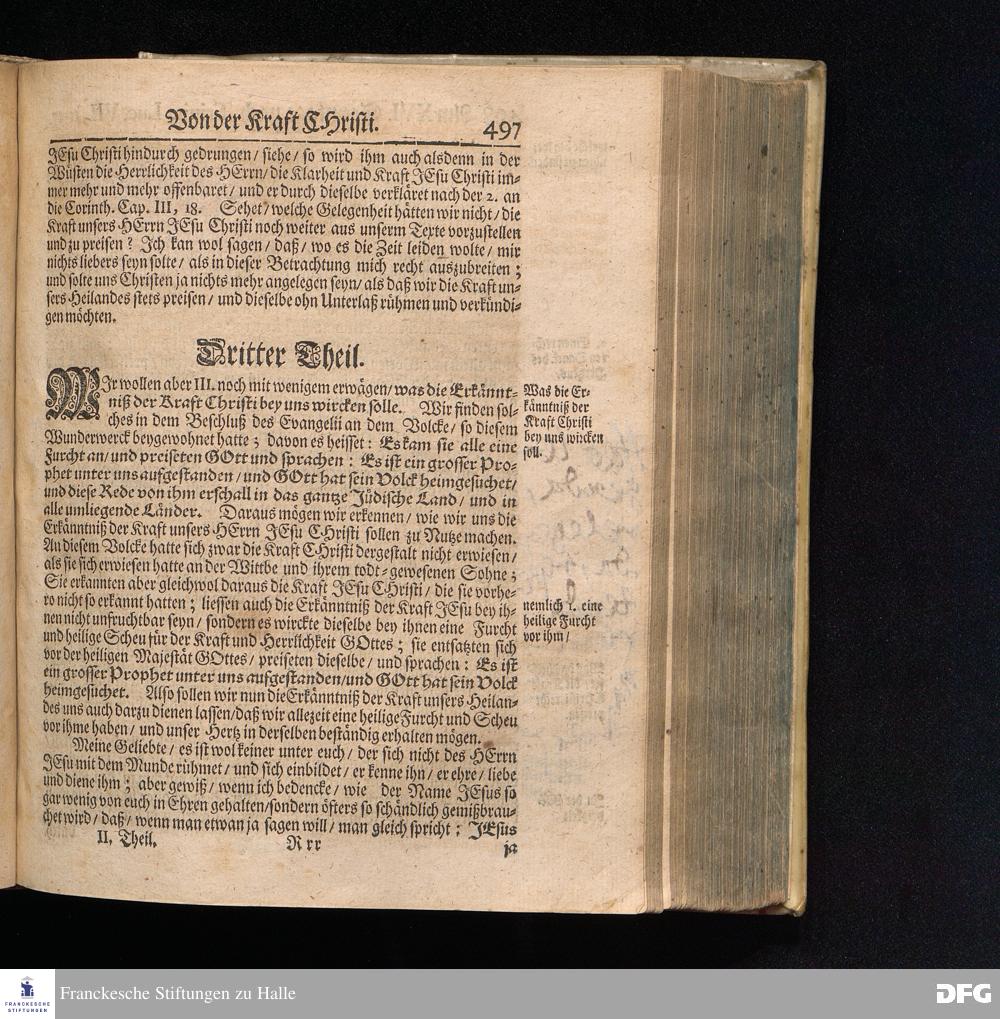 Von der Krafft CHristi.
497
JEsu Christi hindurch gedrungen/ siehe/ so wird ihm auch alsdenn in der
Wüsten die Herrlichkeit des HErrn/ die Klarheit und Kraft JEsu Christi im-
mer mehr und mehr offenbaret/ und er durch dieselbe verkläret nach der 2. an
die Corinth. Cap. III, 18. Sehet/ welche Gelegenheit hätten wir nicht/ die
Kraft unsers HErrn JEsu Christi noch weiter aus unserm Texte vorzustellen
und zu preisen? Ich kan wol sagen/ daß/ wo es die Zeit leiden wolte/ mir
nichts liebers seyn solte/ als in dieser Betrachtung mich recht auszubreiten;
und solte uns Christen ja nichts mehr angelegen seyn/ als daß wir die Kraft un-
sers Heilandes stets preisen/ und dieselbe ohn Unterlaß rühmen und verkündi-
gen möchten.
Dritter Theil.
WIr wollen aber III. noch mit wenigem erwägen/ was die Erkännt-
niß der Kraft Christi bey uns wircken solle. Wir finden sol-
ches in dem Beschluß des Evangelii an dem Volcke/ so diesem
Wunderwerck beygewohnet hatte; davon es heisset: Es kam sie alle eine
Furcht an/ und preiseten GOtt und sprachen: Es ist ein grosser Pro-
phet unter uns aufgestanden/ und GOtt hat sein Volck heimgesuchet/
und diese Rede von ihm erschall in das gantze Jüdische Land/ und in
alle umliegende Länder. Daraus mögen wir erkennen/ wie wir uns die
Erkänntniß der Kraft unsers HErrn JEsu CHristi sollen zu Nutze machen.
An diesem Volcke hatte sich zwar die Kraft CHristi dergestalt nicht erwiesen/
als sie sich erwiesen hatte an der Wittbe und ihrem todt-gewesenen Sohne;
Sie erkannten aber gleichwol daraus die Kraft JEsu CHristi/ die sie vorhe-
ro nicht so erkannt hatten; liessen auch die Erkänntniß der Kraft JEsu bey ih-
nen nicht unfruchtbar seyn/ sondern es wirckte dieselbe bey ihnen eine Furcht
und heilige Scheu für der Kraft und Herrlichkeit GOttes; sie entsatzten sich
vor der heiligen Majestät GOttes/ preiseten dieselbe/ und sprachen: Es ist
ein grosser Prophet unter uns aufgestanden/ und GOtt hat sein Volck
heimgesuchet. Also sollen wir nun die Erkänntniß der Kraft unsers Heilan-
des uns auch darzu dienen lassen/ daß wir allezeit eine heilige Furcht und Scheu
vor ihme haben/ und unser Hertz in derselben beständig erhalten mögen.
Meine Geliebte/ es ist wol keiner unter euch/ der sich nicht des HErrn
JEsu mit dem Munde rühmet/ und sich einbildet/ er kenne ihn/ er ehre/ liebe
und diene ihm; aber gewiß/ wenn ich bedencke/ wie der Name JEsus so
gar wenig von euch in Ehren gehalten/ sondern öfters so schändlich gemißbrau-
chet wird/ daß/ wenn man etwan ja sagen will/ man gleich spricht: JEsus
II. Theil.
Rrr
ja
Was die Er-
känntniß der
Kraft Christi
bey uns wircken
soll.
nemlich 1. eine
heilige Furcht
vor ihm/
FRANCKESCHE
STIFTUNGEN
Franckesche Stiftungen zu Halle
DFG